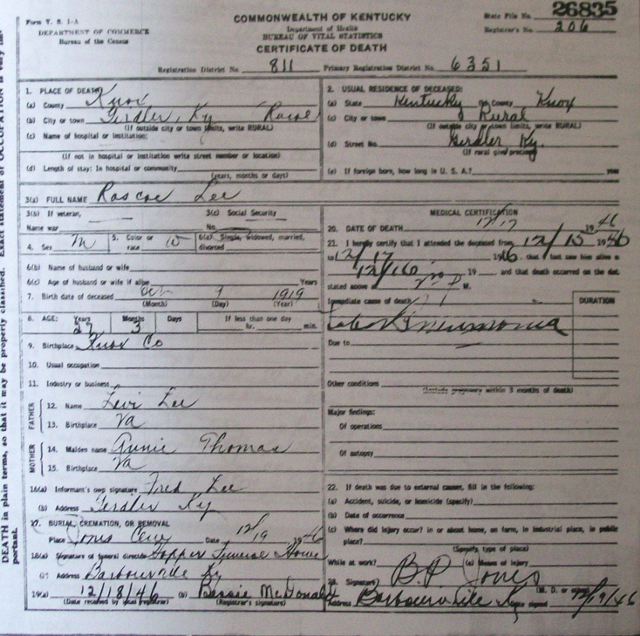 Form V. S. 1-A
DEPARTMENT OF COMMERCE
Bureau of the Census
COMMONWEALTH OF KENTUCKY
Department of Health
BUREAU OF VITAL STATISTICS
CERTIFICATE OF DEATH
State File No. 26835
Registrar's No. 206
Registration District No. 811 Primary Registration District No. 6351
1. PLACE OF DEATH
(a) County Knox
(b) City or town Ky
(If outside city or town limits, write RURAL)
(c) Name of hospital or institution:
(If not in hospital or institution write street number or location)
(d) Length of stay: In hospital or community
(years, months or days)
2. USUAL RESIDENCE OF DECEASED:
(a) State Kentucky (b) County Knox
(c) City or town Rural
(If outside city or town limits, write RURAL)
(d) Street No. Ky.
(If rural give precinct)
(e) If foreign born, how long in U. S. A.? year
3(a) FULL NAME Roscoe Lee
3(b) If veteran,
Name war
3(c) Social Security
No.
4. Sex M
5. Color or race W
6(a) Single, widowed, married,
divorced
6(b) Name of husband or wife
6(c) Age of husband or wife if alive Years
7. Birth date of deceased 9 1919
(Month) (Day) (Year)
8. AGE: Years Months Days If less than one day
27 3 hr. min.
9. Birthplace Knox Co
10. Usual occupation
11. Industry or business
FATHER
12. Name Levi Lee
13. Birthplace Va
MOTHER
14. Maiden name Annie Thomas
15. Birthplace Va
16(a) Informant's own signature Fred Lee
(b) Address Ky
17. BURIAL, CREMATION, OR REMOVAL
Place Jones Cem Date 12/19 1946
18(a) Signature of funeral director Hopper Funeral Home
(b) Address Barbourville Ky
19(a) 12/18/46 (b) Bessie McDonald
(Date received by local registrar) (Registrar's signature)
MEDICAL CERTIFICATION
20. DATE OF DEATH 12/17 1946
21. I hereby certify that I attended the deceased from 12/15 1946
to 12/17 1946, that I last saw him alive on
12/16 19 and that death occurred on the date
stated above at M.
Immediate cause of death DURATION
Lobar Pneumonia
Due to
Other conditions
(Include pregnancy within 3 months of death)
Major findings:
Of operations
Of autopsy
22. If death was due to external causes, fill in the following:
(a) Accident, suicide, or homicide (specify)
(b) Date of occurrence
(c) Where did injury occur? in or about home, on farm, in industrial place, in public
place?
(Specify type of place)
While at work? (e) Means of injury
23. Signature B.P. Jones
(M. D. or other)
Address Barbourville Ky Date signed 12/19/46
DEATH in plain terms, so that it may be properly classified. Exact statement of OCCUPATION is very im-
portant.